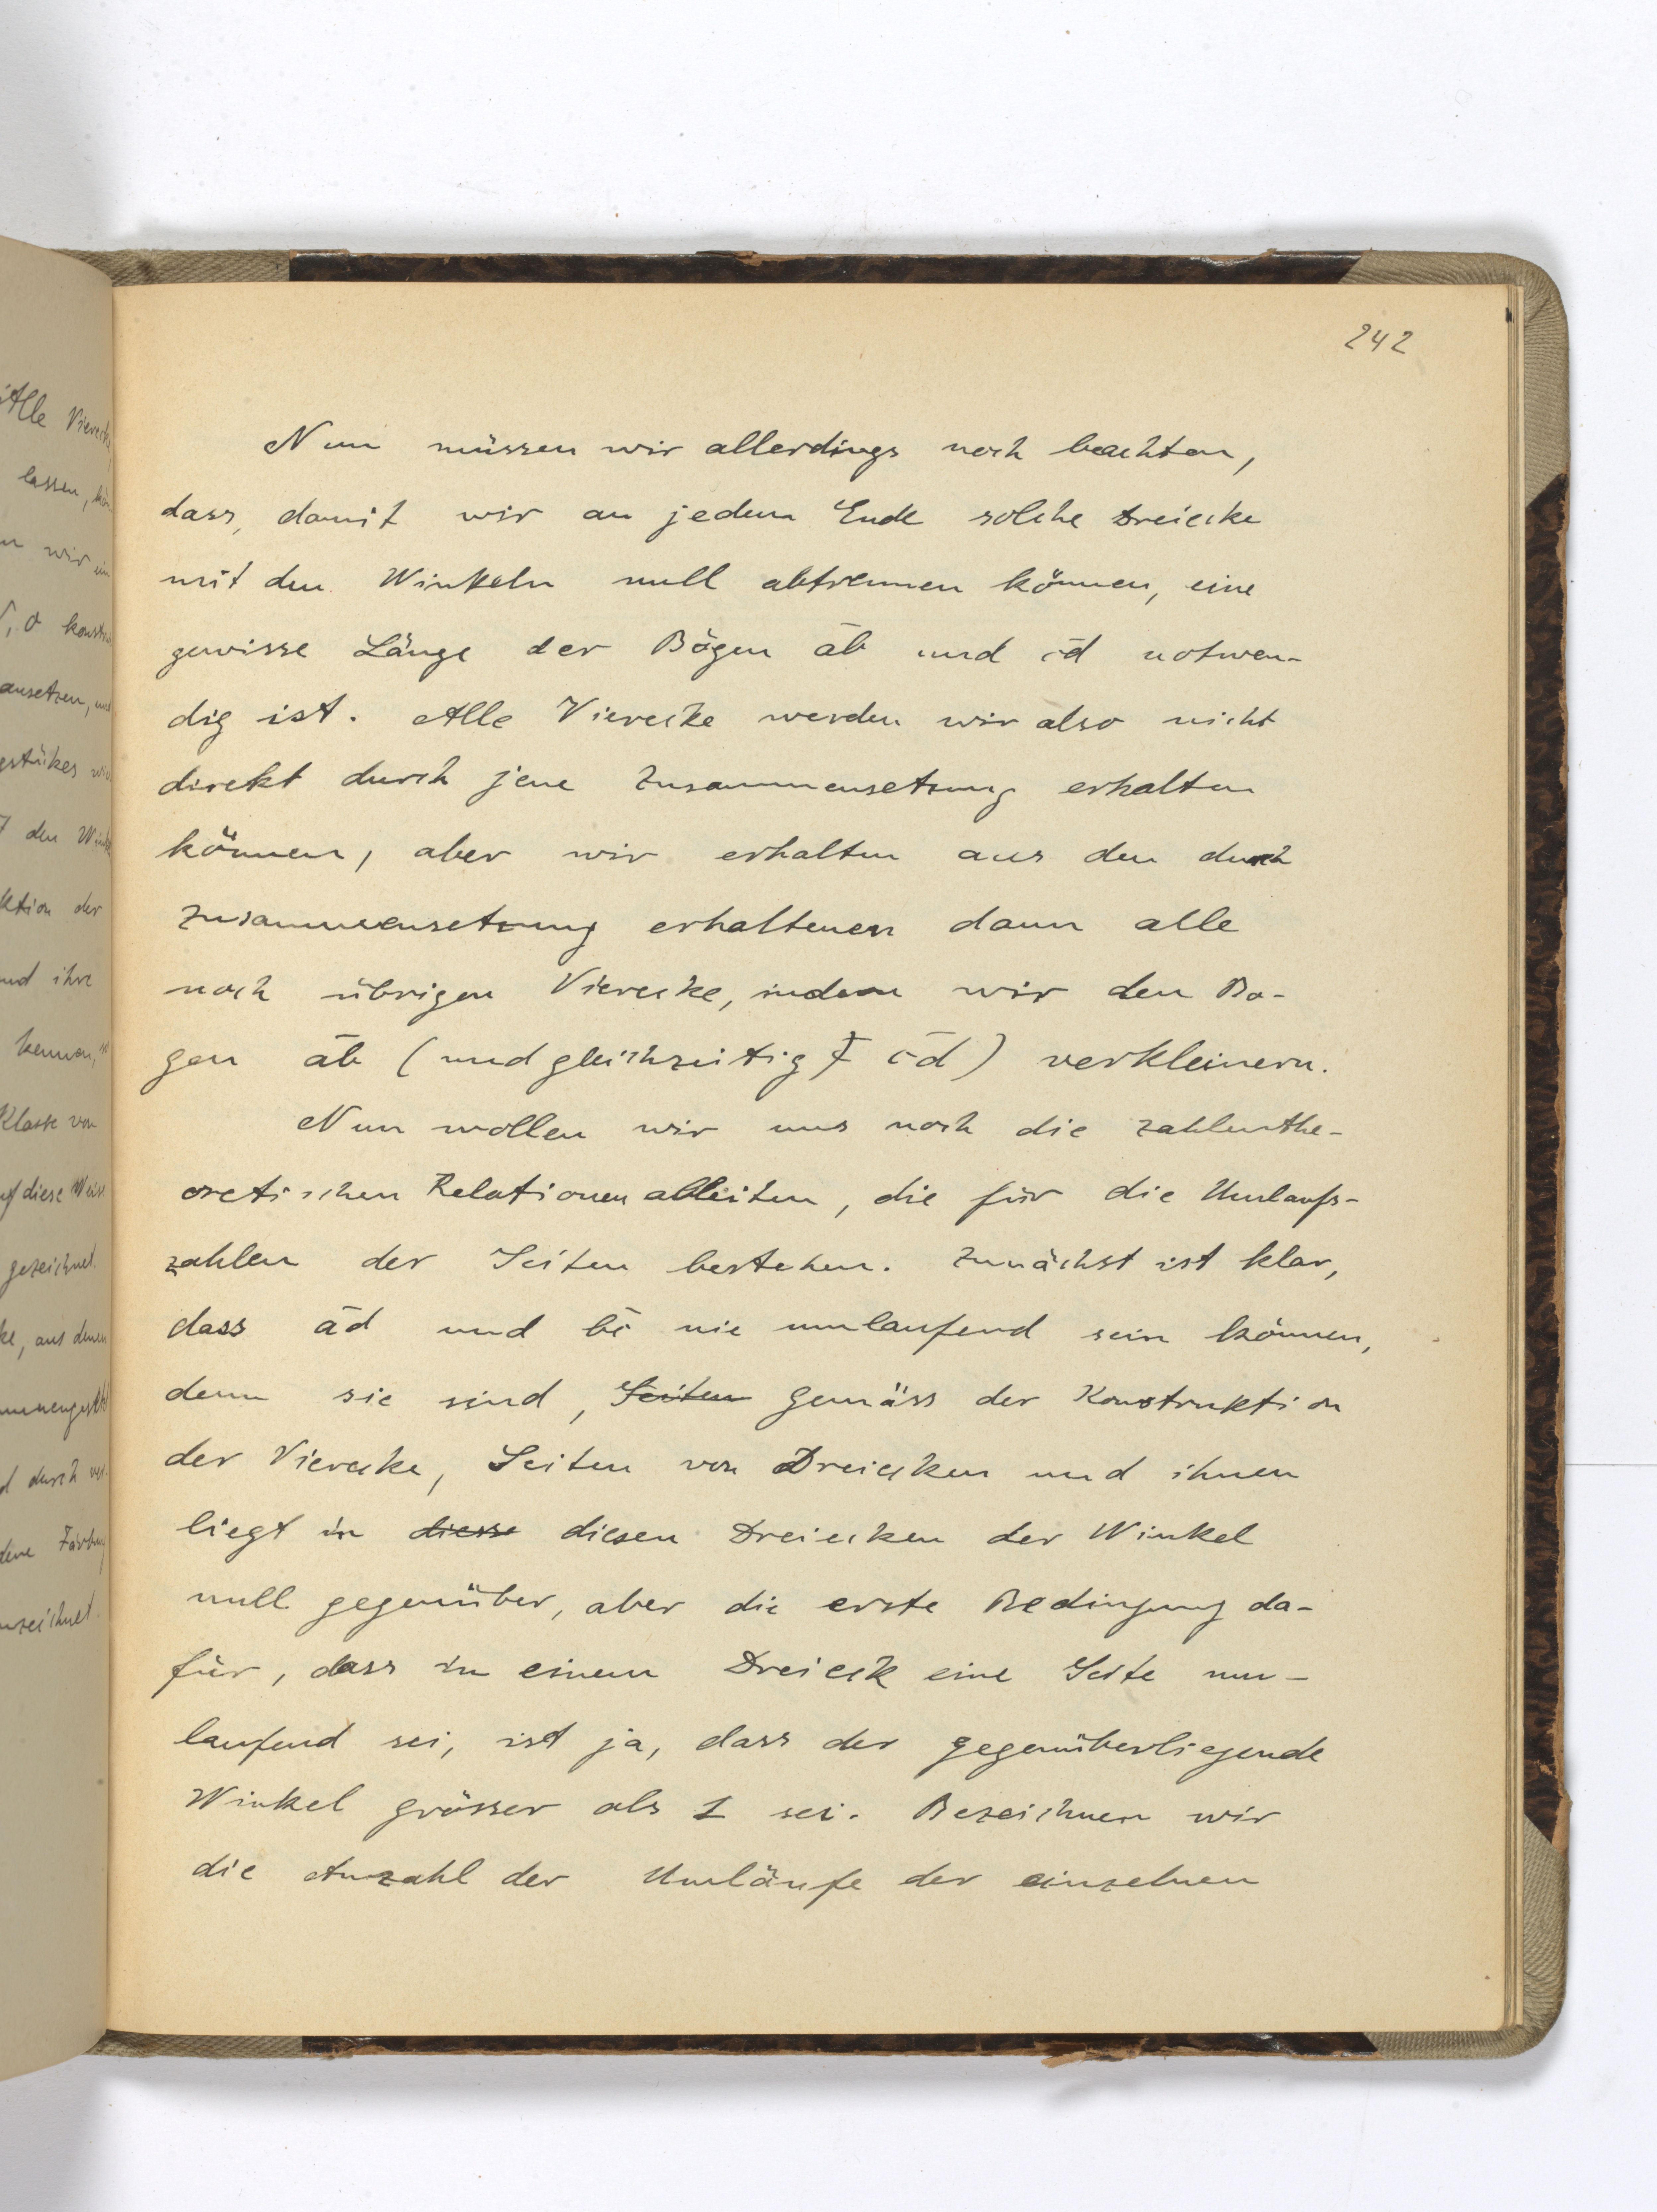 242
Nun müssen wir allerdings noch beachten,
dass, damit wir an jedem Ende solche Dreiecke
mit den Winkeln null abtrennen können, eine
gewisse Länge der Bögen a̅b̅ und c̅d̅ notwen-
dig ist. Alle Vierecke werden wir also nicht
direkt durch jene Zusammensetzung erhalten
können, aber wir erhalten aus den durch
Zusammensetzung erhaltenen dann alle
noch übrigen Vierecke, indem wir den Bo-
gen a̅b̅ (und gleichzeitig c̅d̅) verkleinern.
Nun wollen wir uns noch die zahlenthe-
oretischen Relationen ableiten, die für die Umlaufs-
zahlen der Seiten bestehen. Zunächst ist klar,
dass a̅d̅ und b̅c̅ nie umlaufend sein können,
denn sie sind, Seiten gemäss der Konstruktion
der Vierecke, Seiten von Dreiecken und ihnen
liegt in diese diesen Dreiecken der Winkel
null gegenüber, aber die erste Bedingung da-
für, dass in einem Dreieck eine Seite um-
laufend sei, ist ja, dass der gegenüberliegende
Winkel grösser als 1 sei. Bezeichnen wir
die Anzahl der Umläufe der einzelnen